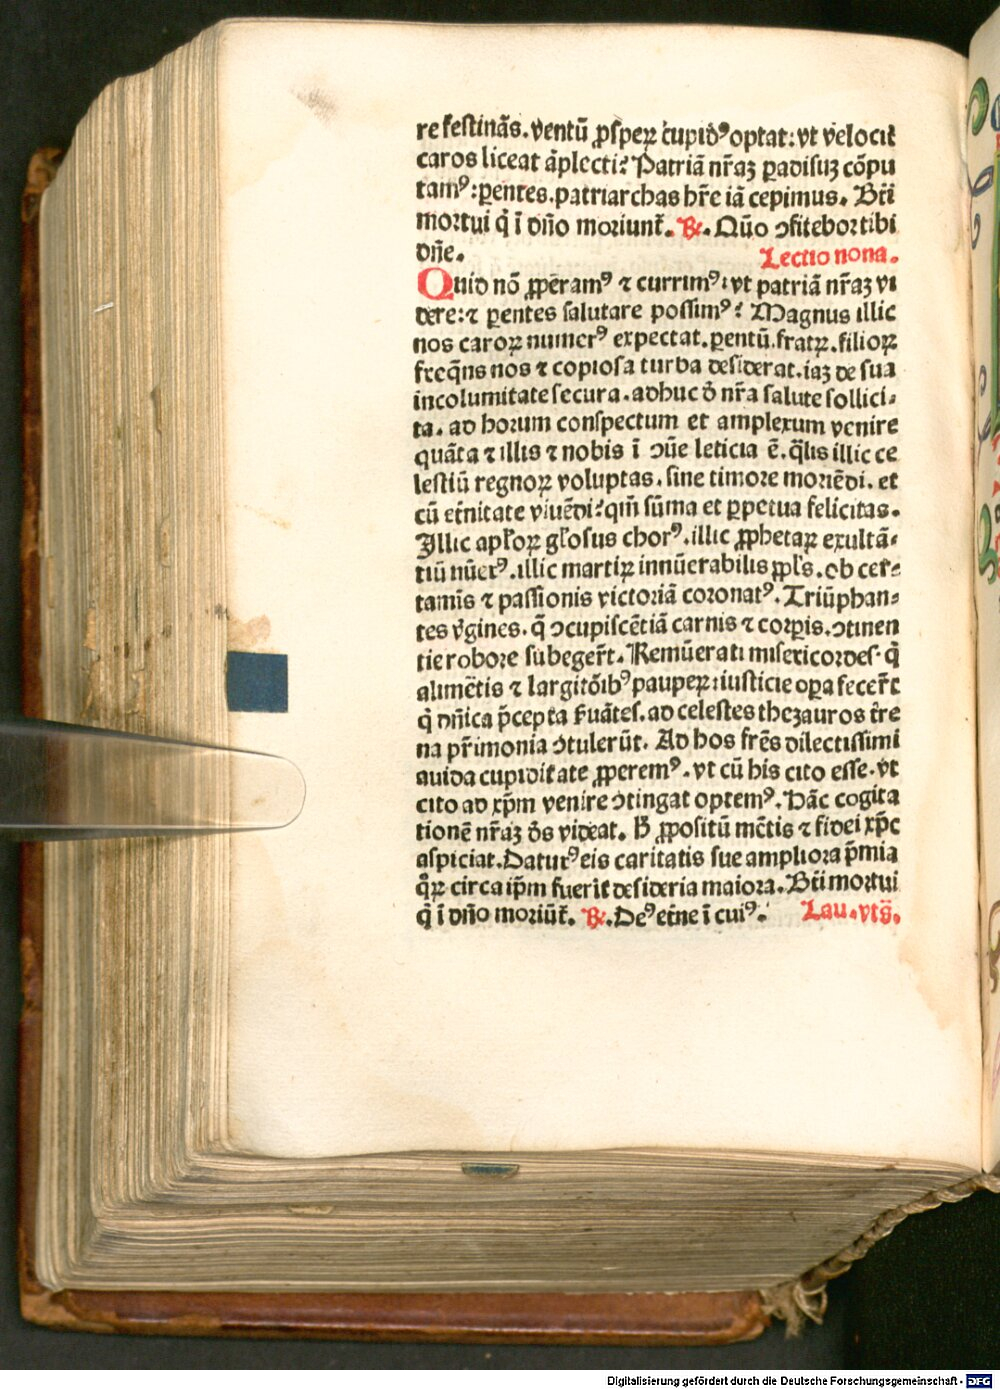 re festinās. ventū ꝓsperꝝ cupidꝰ optat: vt velocit̄
caros liceat āplecti? Patriā nr̄aꝫ ꝑadisuꝫ cōpu
tamꝰ: ꝑentes. patriarchas hr̄e iā cepimus. Bt̄i
mortui q̄ ī dn̄o moriunt̄. ℟. Qūo ↄfitebor tibi
dn̄e. Lectio nona.
Quid nō ꝓꝑeramꝰ ⁊ currimꝰ: vt patriā nr̄aꝫ vi
dere: ⁊ ꝑentes salutare possimꝰ? Magnus illic
nos caroꝝ numerꝰ expectat. ꝑentū. fratꝝ. filioꝝ
freq̄ns nos ⁊ copiosa turba desiderat. iaꝫ de sua
incolumitate secura. adhuc d̄ nr̄a salute sollici⸗
ta. ad horum conspectum et amplexum venire
quāta ⁊ illis ⁊ nobis ī ↄūe leticia ē. q̄lis illic ce
lestiū regnoꝝ voluptas. sine timore moriēdi. et
cū et̄nitate viuēdi? qm̄ sūma et ꝑpetua felicitas.
Illic apl̄oꝝ gl̄osus chorꝰ. illic ꝓphetaꝝ exultā⸗
tiū nūerꝰ. illic martiꝝ innūerabilis ppl̄s. ob cer⸗
tamīs ⁊ passionis victoriā coronatꝰ. Triūphan⸗
tes v̄gines. q̄ ↄcupiscētiā carnis ⁊ corꝑis. ↄtinen
tie robore subeger̄t. Remūerati misericordes. q̄
alimētis ⁊ largitōibꝰ pauperꝝ iusticie oꝑa fecer̄t
q̄ dn̄ica p̄cepta ẜuātes. ad celestes thezauros t̄re
na pr̄imonia ↄtulerūt. Ad hos fr̄es dilectissimi
auida cupiditate ꝓperemꝰ. vt cū his cito esse. vt
cito ad xp̄m venire ↄtingat optemꝰ. Hāc cogita
tionē nr̄aꝫ d̄s videat. H̄ ꝓpositū mētis ⁊ fidei xp̄c
aspiciat. Daturꝰ eis caritatis sue ampliora p̄mia
q̄ꝝ circa ip̄m fuerīt desideria maiora. Bt̄i mortui
q̄ ī dn̄o moriūt̄. ℟. Deꝰ et̄ne ī cuiꝰ. Lau. vts̄.
Digitalisierung gefördert durch die Deutsche Forschungsgemeinschaft - DFG